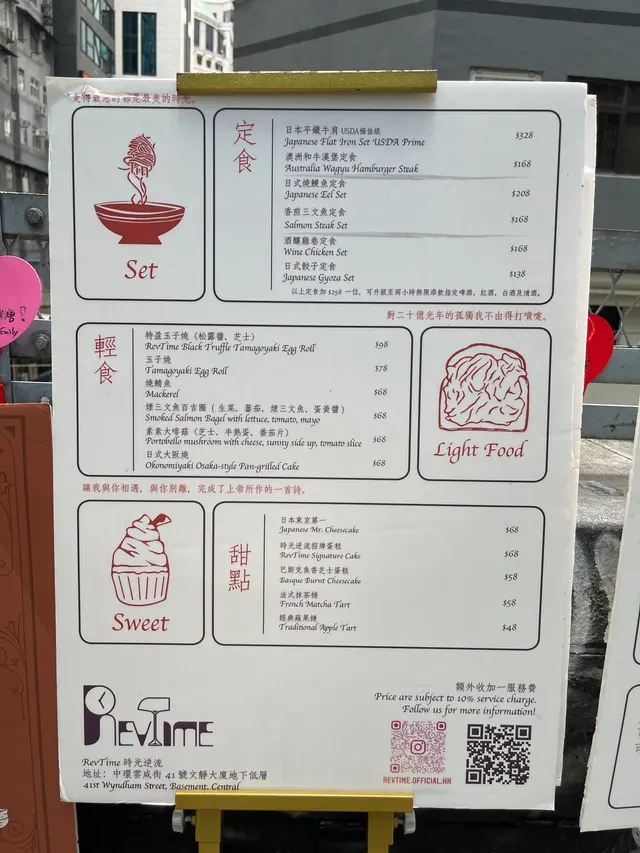 是得最悠的都是最美的時光。
定食
日本平鐵牛肩 USDA極佳級
Japanese Flat Iron Set USDA Prime
$328
澳洲和牛漢堡定食
Australia Wagyu Hamburger Steak
$168
日式燒鰻魚定食
Japanese Eel Set
$208
香煎三文魚定食
Salmon Steak Set
$168
酒釀雞卷定食
Wine Chicken Set
$168
日式餃子定食
Japanese Gyoza Set
$138
以上定食加 $258 一位，可升級至兩小時無限添飲指定啤酒、紅酒、白酒及清酒。
Set
對二十億光年的孤獨我不由得打噴嚏。
輕食
特盈玉子燒（松露醬、芝士）
RevTime Black Truffle Tamagoyaki Egg Roll
$98
玉子燒
Tamagoyaki Egg Roll
$78
燒鯖魚
Mackerel
$68
煙三文魚百吉圈（生菜、蕃茄、煙三文魚、蛋黃醬）
Smoked Salmon Bagel with lettuce, tomato, mayo
$68
素素大啡菇（芝士、半熟蛋、番茄片）
Portobello mushroom with cheese, sunny side up, tomato slice
$68
日式大阪燒
Okonomiyaki Osaka-style Pan-grilled Cake
$68
Light Food
讓我與你相遇，與你別離，完成了上帝所作的一首詩。
甜點
日本東京第一
Japanese Mr. Cheesecake
$68
時光逆流招牌蛋糕
RevTime Signature Cake
$68
巴斯克焦香芝士蛋糕
Basque Burnt Cheesecake
$58
法式抹茶撻
French Matcha Tart
$58
經典蘋果撻
Traditional Apple Tart
$48
Sweet
REVTIME
額外收加一服務費
Price are subject to 10% service charge.
Follow us for more information!
REVTIME.OFFICIAL.HK
RevTime 時光逆流
地址：中環雲咸街 41 號文靜大廈地下低層
41st Wyndham Street, Basement, Central
Emily